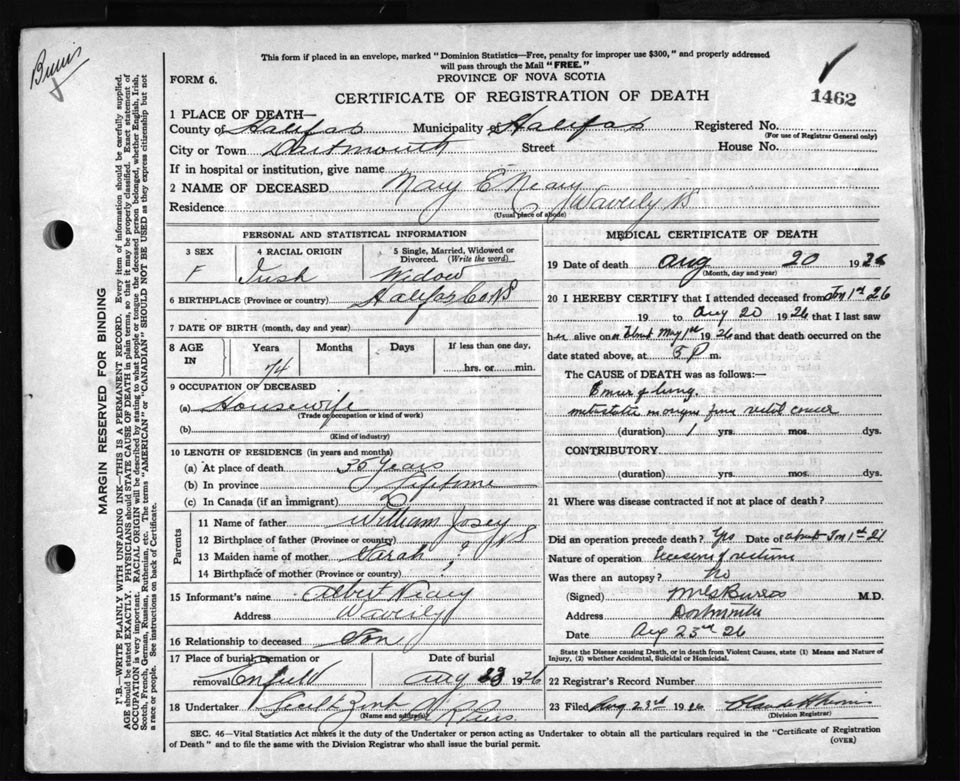 This form if placed in an envelope, marked "Dominion Statistics—Free, penalty for improper use $300," and properly addressed
will pass through the Mail "FREE."
PROVINCE OF NOVA SCOTIA
FORM 6.
CERTIFICATE OF REGISTRATION OF DEATH
1462
1 PLACE OF DEATH—
County of Halifax Municipality of Halifax Registered No.
(For use of Registrar General only)
City or Town Dartmouth Street House No.
If in hospital or institution, give name
2 NAME OF DECEASED Mary E Neary
Residence Waverly NS
(Usual place of abode)
PERSONAL AND STATISTICAL INFORMATION
3 SEX 4 RACIAL ORIGIN 5 Single, Married, Widowed or Divorced. (Write the word)
F Irish Widow
6 BIRTHPLACE (Province or country) Halifax Co NS
7 DATE OF BIRTH (month, day and year)
8 AGE IN Years Months Days If less than one day,
74 hrs. or min.
9 OCCUPATION OF DECEASED
(a) Housewife
(Trade or occupation or kind of work)
(b)
(Kind of industry)
10 LENGTH OF RESIDENCE (in years and months)
(a) At place of death 35 Years
(b) In province Lifetime
(c) In Canada (if an immigrant)
Parents
11 Name of father William Josey
12 Birthplace of father (Province or country) NS
13 Maiden name of mother Sarah ?
14 Birthplace of mother (Province or country) ?
15 Informant's name Albert Neary
Address Waverly
16 Relationship to deceased Son
17 Place of burial, cremation or removal Enfield Date of burial Aug 23 1926
18 Undertaker
(Name and address)
MEDICAL CERTIFICATE OF DEATH
19 Date of death Aug 20 1926
(Month, day and year)
20 I HEREBY CERTIFY that I attended deceased from Jan 1st 26
19 to Aug 20 1926 that I last saw
her alive on About May 1st 1926 and that death occurred on the
date stated above, at 5 P m.
The CAUSE of DEATH was as follows:—
of lung.
(duration) 1 yrs. mos. dys.
CONTRIBUTORY
(duration) yrs. mos. dys.
21 Where was disease contracted if not at place of death?
Did an operation precede death? Yes Date of about Jan 1st
Nature of operation
Was there an autopsy? No
(Signed) M.D.
Address Dartmouth
Date Aug 23rd 26
State the Disease causing Death, or in death from Violent Causes, state (1) Means and Nature of
Injury, (2) whether Accidental, Suicidal or Homicidal.
22 Registrar's Record Number
23 Filed Aug 23rd 1926
(Division Registrar)
SEC. 46—Vital Statistics Act makes it the duty of the Undertaker or person acting as Undertaker to obtain all the particulars required in the "Certificate of Registration
of Death" and to file the same with the Division Registrar who shall issue the burial permit.
(OVER)
MARGIN RESERVED FOR BINDING
N.B.—WRITE PLAINLY WITH UNFADING INK—THIS IS A PERMANENT RECORD. Every item of information should be carefully supplied.
AGE should be stated EXACTLY. PHYSICIANS should STATE CAUSE OF DEATH in plain terms, so that it may be properly classified. Exact statement of
OCCUPATION is very important. RACIAL ORIGIN will be described by stating to what people or tongue the deceased person belonged, whether English, Irish,
Scotch, French, German, Russian, Ruthenian, etc. The terms "AMERICAN" or "CANADIAN" SHOULD NOT BE USED as they express citizenship but not
a race or people. See instructions on back of Certificate.